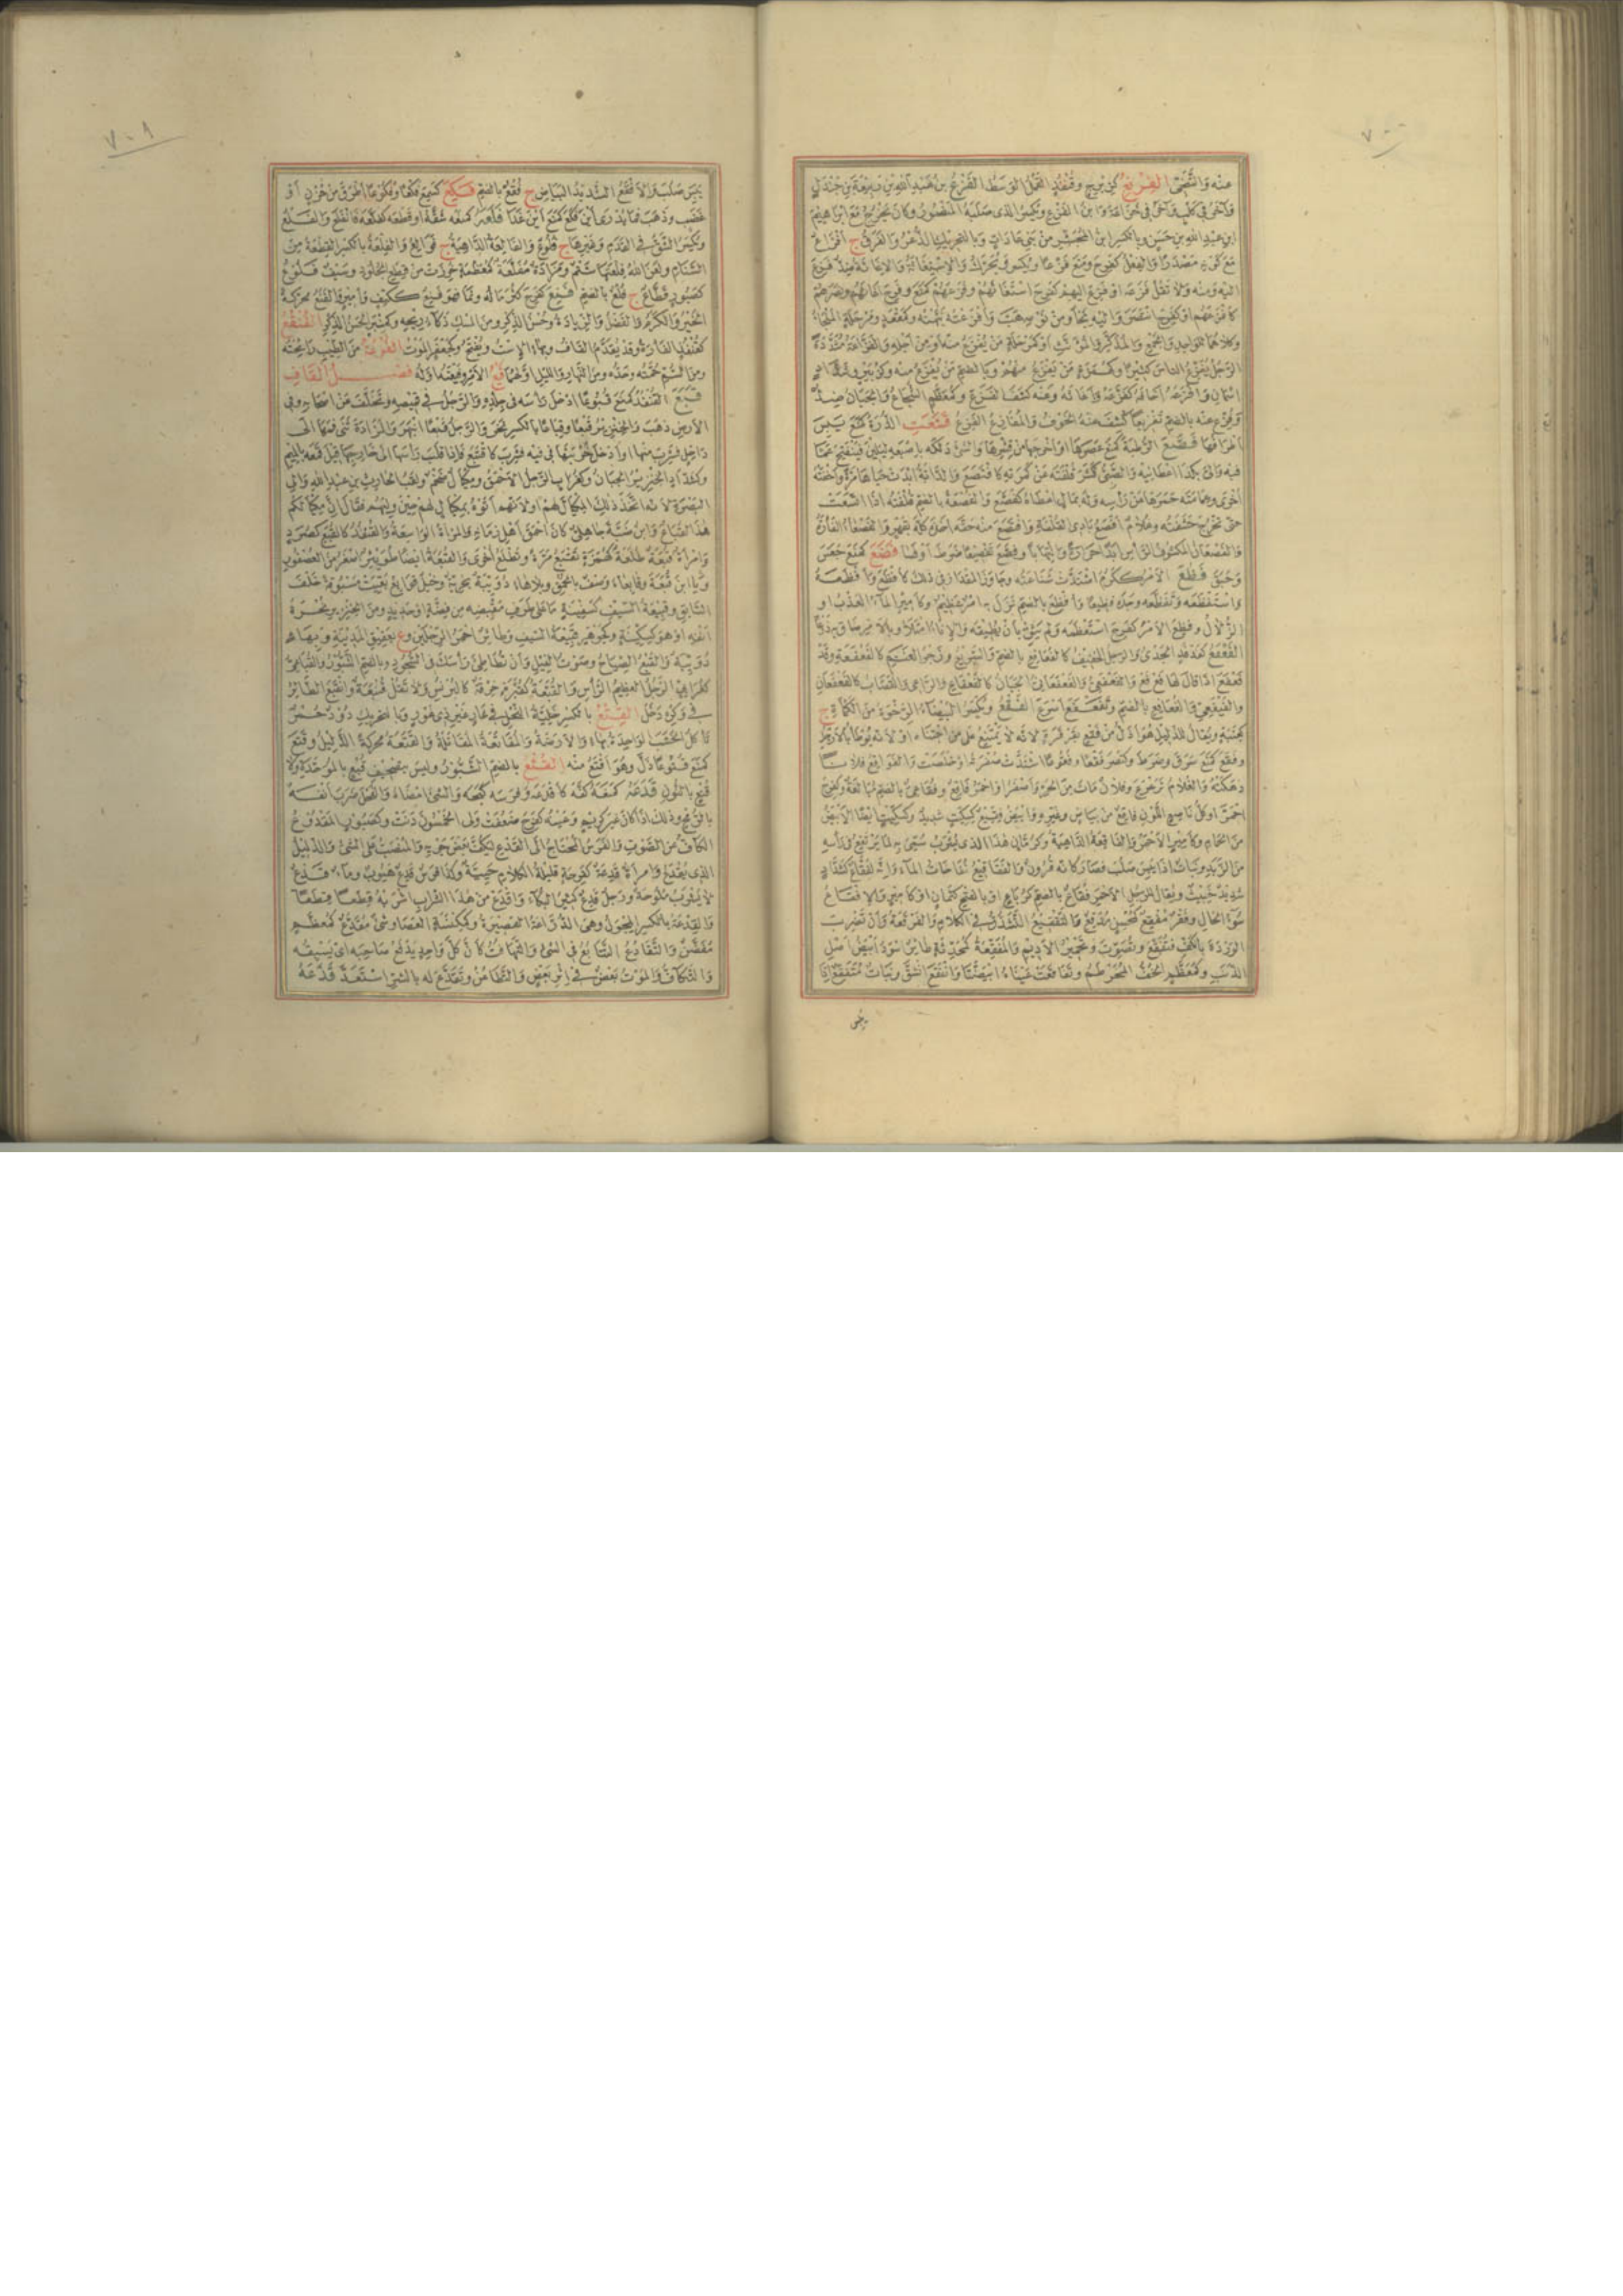 ٧٠٠
عنه والشئ الفزع كزبرج وقنفذ القمل الوسط الفزع بن عبد الله بن ربيعة بن جندل
وآخر في كلب وآخر في خزاعة وابن الفزع ويكسر الذي صلبه المنصور وكان يخرج مع ابراهيم
ابن عبد الله بن حسن وبالكسر ابن المجشر من بني عاداة وبالتحريك الذعر والفرق ج افزاع
مع كونه مصدرا والفعل كفرح ومنع فزعا ويكسر ويحرك والاستغاثة والاغاثة ضد فزع
اليه ومنه ولا تقل فزعه او فزع اليهم كفرح استغاثهم وفزعهم كمنع وفرح اغاثهم ونصرهم
كأفزعهم او كفرح انتصر واليه لجأ ومن نومه هب وأفزعته نبهته وكمقعد ومرحلة الملجأ
وكلاهما للواحد والجمع والمذكر والمؤنث او كمرحلة من يفزع منه او من اجله والفزاعة مشددة
الرجل يفزع الناس كثيرا وكهمزة من يفزع منهم وبالضم من يفزع منه وكزبير وشداد
اسمان وأفزعه اخافه كفزعه وأغاثه وعنه كشف الفزع وكمعظم الشجاع والجبان ضد
وفزع عنه بالضم تفزيعا كشف عنه الخوف والمفازع الفزع فشعت الذرة كمنع يبس
اطرافها فصع الرطبة كمنع عصرها او اخرجها من قشرها والشئ دلكه باصبعه ليلين فينفتح عما
فيه ولى بكذا اعطانيه والصبي كشر قلفته عن كمرته كافتصع والدابة ابدت حياها مرة وأخفته
اخرى وعمامته حسرها عن رأسه وله بمال اعطاه كفصع والفصعة بالضم قلفته اذا اتسعت
حتى تخرج حشفته وغلام افصع بادي القلفة وافتصع منه حقه اخذه كله بقهر والفصعاء الفأرة
والفصعان المكشوف الرأس ابدا حرارة والتهابا وفصع تفصيعا ضرط او فسا فضع كمنع جعس
وحبق فظع الامر ككرم اشتدت شناعته وجاوز المقدار في ذلك كأفظع وأفظعه
واستفظعه وتفظعه وجده فظيعا وأفظع بالضم نزل به امر عظيم وكأمير الماء العذب او
الزلال وفظع الامر كفرح استعظمه ولم يثق بأن يطيقه والاناء امتلأ وبالامر ضاق به ذرعا
الفعفع كفدفد الجدي والرجل الخفيف كالفعافع بالضم والسريع وزجر الغنم كالفعفعة وقد
فعفع اذا قال لها فع فع والفعفعي والفعفعاني الجبان كالفعفاع والراعي والقصاب كالفعفعان
والفعفعي والفعافع بالضم وتفعفع اسرع الفقع ويكسر البيضاء الرخوة من الكمأة ج
كعنبة ويقال للذليل هو اذل من فقع بقرقرة لانه لا يمتنع على من اجتناه او لانه يوطأ بالارجل
وفقع كمنع سرق وضرط وكنصر فقعا وفقوعا اشتدت صفرته او خلصت والفواقع فلانا
دهكته والغلام ترعرع وفلان مات من الحر واصفر او احمر فاقع وفقاعي بالضم مبالغة وكفرح
احمر او كل ناصع اللون فاقع من بياض وغيره وابيض فقيع كسكيت شديد وكسكيت ايضا الابيض
من الحمام وكأمير الاحمر والفاقعة الداهية وكرمان هذا الذي يشرب سمي به لما يرتفع في رأسه
من الزبد ونبات اذا يبس صلب فصار كأنه قرون والفقاقيع نفاخات الماء وانه لفقاع كشداد
شديد خبيث ويقال للرجل الاحمر فقاع بالضم كرباع او بالفتح كثمان او كأمير والافقاع
سوء الحال وفقر مفقع كمحسن مدقع والتفقيع التشدق في الكلام والفرقعة وان تضرب
الوردة بالكف فتفقع وتصوت وتحمير الاديم والمفقعة كمحدثة طائر اسود ابيض اصل
الذنب وكمعظم الخف المخرطم وتفاقعت عيناه ابيضتا وانفقع انشق ونبات متفقع اذا
يبس
٧٠١
يبس صلب والافقع الشديد البياض ج فقع بالضم فكع كسمع فكعا وفكوعا اطرق من حزن او
غضب وذهب فما يدرى اين فكع كمنع اين غدا فلعه كمنعه شقه او قطعه كفلعه فانفلع والفلع
ويكسر الشق في القدم وغيرها ج فلوع والفالعة الداهية ج فوالع والفلعة بالكسر القطعة من
السنام ولعن الله فلعتها شتم ومزادة مفلعة كمعظمة خرزت من قطع الجلود وسيف فلوع
كصبور قطاع ج فلع بالضم فنع كفرح كثر ماله ونما فهو فنع ككتف وأمير والفنع محركة
الخير والكرم والفضل والزيادة وحسن الذكر ومن المسك ذكاء ريحه وكمنبر الحسن الذكر الفنقع
كقنفذ الفأرة وقد يقدم القاف وبهاء الاست ويفتح وكجعفر الموت الفوعة من الطيب رائحته
ومن السم حمته وحده ومن النهار والليل اولهما فيع الامر وفيعته اوله فصل القاف
قبع القنفذ كمنع قبوعا ادخل رأسه في جلده والرجل في قميصه وتخلف عن اصحابه وفي
الارض ذهب والخنزير قبعا وقباعا بالكسر نخر والرجل قبعا انبهر والمزادة ثنى فمها الى
داخل فشرب منها او ادخل خربتها في فيه فشرب كاقتبع فاذا قلب رأسها الى خارجها قيل قمعه بالميم
وكشداد الخنزير الجبان وكغراب الرجل الاحمق ومكيال ضخم ولقب الحارث بن عبد الله والي
البصرة لانه اتخذ ذلك المكيال لهم او لانهم اتوه بمكيال لهم حين وليهم فقال ان مكيالكم
هذا لقباع وابن ضبة جاهلي كان احمق اهل زمانه والمرأة الواسعة والقنفذ كالقبع كصرد
وامرأة قبعة طلعة كهمزة تقبع مرة وتطلع اخرى والقبعة ايضا طويئر اصغر من العصفور
ويا ابن قبعة وقابعاء وصف بالحمق وبلا هاء دويبة بحرية وخيل قوابع بقيت مسبوقة خلف
السابق وقبيعة السيف كسفينة ما على طرف مقبضه من فضة او حديد ومن الخنزير نخرة
انفه او هو كسكينة وكجوهر قبيعة السيف وطائر احمر الرجلين وع بعقيق المدينة وبهاء
دويبة والقبع الصياح وصوت الفيل وان تطاطئ رأسك في السجود وبالضم الشبور والقباعي
كغرابي الرجل العظيم الرأس والقبعة كقبرة خرقة كالبرنس ولا تقل قنبعة وانقبع الطائر
في وكره دخل القبثع بالكسر خلية النحل في غار غير ذي غور وبالتحريك دود حمر
تأكل الخشب الواحدة بهاء والارضة والمقاتعة المقاتلة والقتعة محركة الذليل وقتع
كمنع قتوعا ذل وهو اقتع منه القثع بالضم الشبور وليس بتصحيف قبع بالموحدة ولا
قنع بالنون قدعه كمنعه كفه كأقدعه وفرسه كبحه والشئ امضاه والفحل ضرب انفه
بالرمح وذلك اذا كان غير كريم وعينه كفرح ضعفت ولي الخمسون دنت وكصبور المقدوع
الكاف عن الصوت والفرس المحتاج الى القدع ليكف بعض جريه والمنصب على الشئ والذليل
الذي يقدع وامرأة قدعة كفرحة قليلة الكلام حيية وكذا فرس قدع هيوب وماء قدع
لا يشرب ملوحة ورجل قدع كثير البكاء واقدع من هذا الشراب اشربه قطعا قطعا
والقدعة بالكسر المجول وهي الدراعة القصيرة وكمكنسة العصا وشئ مقدع كمعظم
مغضن والتقادع التتابع في الشئ والتهافت كأن كل واحد يدفع صاحبه اي يسبقه
والتكاف والموت بعض في اثر بعض والتطاعن وتقدع له بالشر استعد قذعه